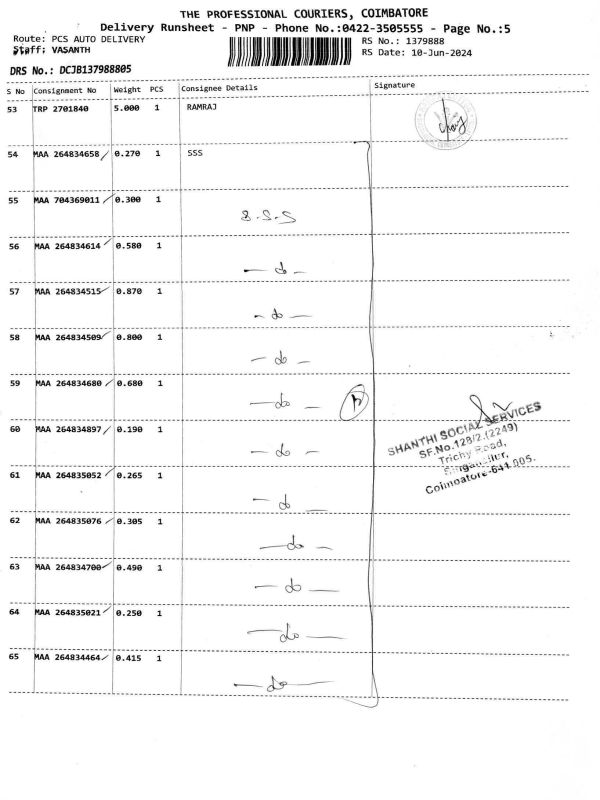 THE PROFESSIONAL COURIERS, COIMBATORE
Delivery Runsheet - PNP - Phone No.:0422-3505555 - Page No.:5
Route: PCS AUTO DELIVERY
RS No.: 1379888
Staff: VASANTH
RS Date: 10-Jun-2024
DRS No.: DCJB137988805
S No Consignment No Weight PCS Consignee Details Signature
53 TRP 2701840 5.000 1 RAMRAJ
54 MAA 264834658 0.270 1 SSS
55 MAA 704369011 0.300 1 S.S.S
56 MAA 264834614 0.580 1 — do —
57 MAA 264834515 0.870 1 — do —
58 MAA 264834509 0.800 1 — do —
59 MAA 264834680 0.680 1 — do —
60 MAA 264834897 0.190 1 — do —
61 MAA 264835052 0.265 1 — do —
62 MAA 264835076 0.305 1 — do —
63 MAA 264834700 0.490 1 — do —
64 MAA 264835021 0.250 1 — do —
65 MAA 264834464 0.415 1 — do —
SHANTHI SOCIAL SERVICES
SF.No.128/2,(2249)
Trichy Road,
Coimbatore-641 005.